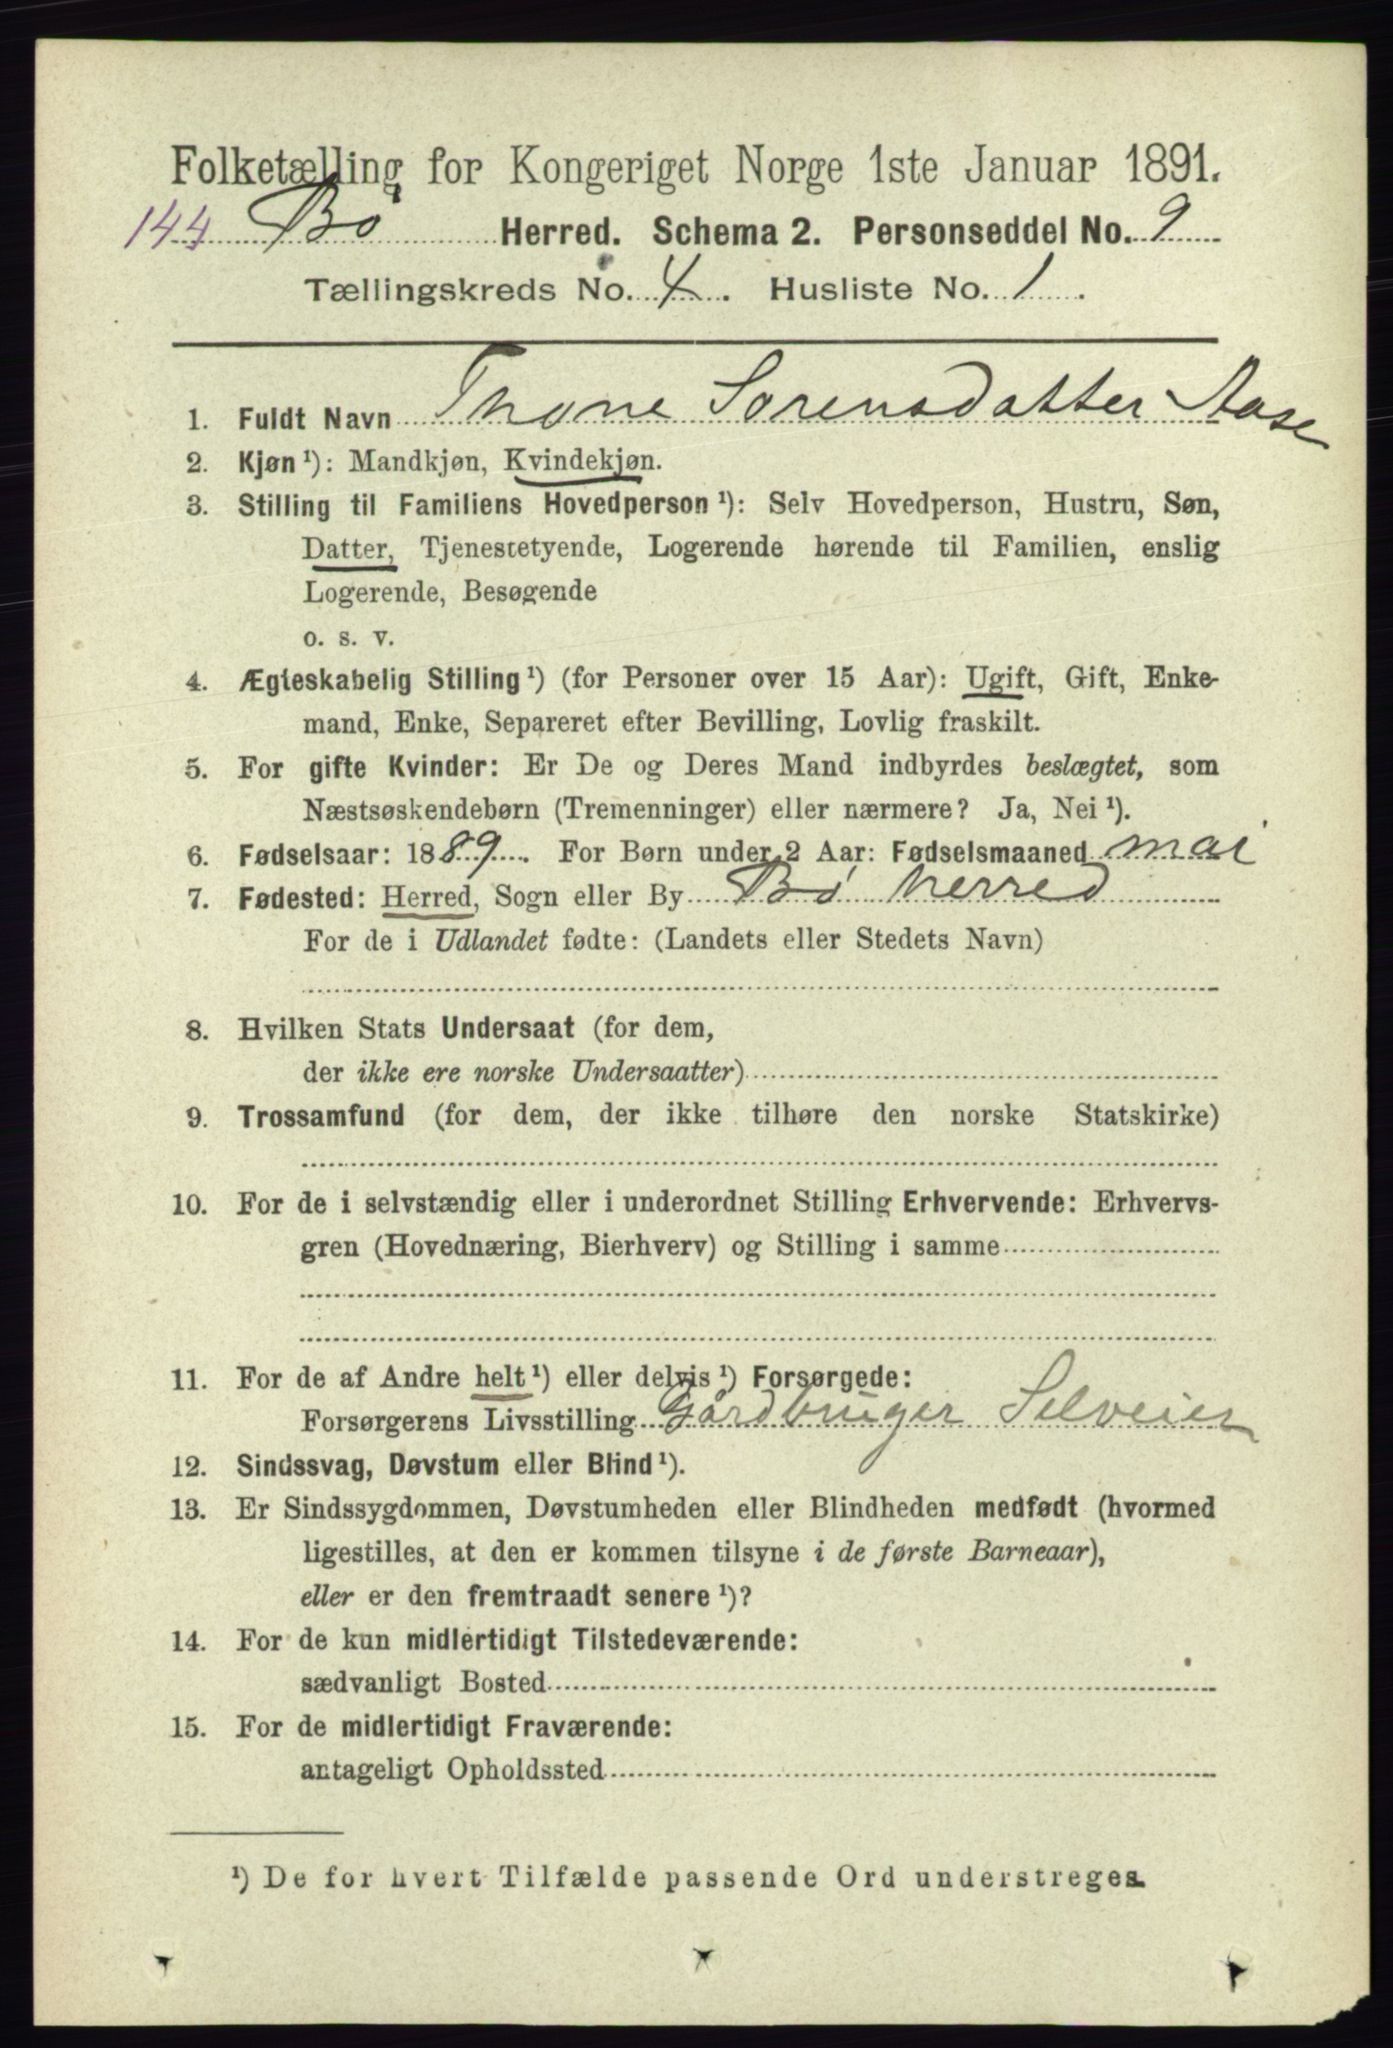 Folketælling for Kongeriget Norge 1ste Januar 1891.
144 Bø Herred. Schema 2. Personseddel No. 9
Tællingskreds No. 4. Husliste No. 1.
1. Fuldt Navn Thone Sørensdatter Aase
2. Kjøn ¹): Mandkjøn, Kvindekjøn.
3. Stilling til Familiens Hovedperson ¹): Selv Hovedperson, Hustru, Søn,
Datter, Tjenestetyende, Logerende hørende til Familien, enslig
Logerende, Besøgende
o. s. v.
4. Ægteskabelig Stilling ¹) (for Personer over 15 Aar): Ugift, Gift, Enke-
mand, Enke, Separeret efter Bevilling, Lovlig fraskilt.
5. For gifte Kvinder: Er De og Deres Mand indbyrdes beslægtet, som
Næstsøskendebørn (Tremenninger) eller nærmere? Ja, Nei ¹).
6. Fødselsaar: 1889. For Børn under 2 Aar: Fødselsmaaned mai
7. Fødested: Herred, Sogn eller By Bø herred
For de i Udlandet fødte: (Landets eller Stedets Navn)
8. Hvilken Stats Undersaat (for dem,
der ikke ere norske Undersaatter)
9. Trossamfund (for dem, der ikke tilhøre den norske Statskirke)
10. For de i selvstændig eller i underordnet Stilling Erhvervende: Erhvervs-
gren (Hovednæring, Bierhverv) og Stilling i samme
11. For de af Andre helt ¹) eller delvis ¹) Forsørgede:
Forsørgerens Livsstilling Gårdbruger Selveier
12. Sindssvag, Døvstum eller Blind ¹).
13. Er Sindssygdommen, Døvstumheden eller Blindheden medfødt (hvormed
ligestilles, at den er kommen tilsyne i de første Barneaar),
eller er den fremtraadt senere ¹)?
14. For de kun midlertidigt Tilstedeværende:
sædvanligt Bosted
15. For de midlertidigt Fraværende:
antageligt Opholdssted
¹) De for hvert Tilfælde passende Ord understreges.